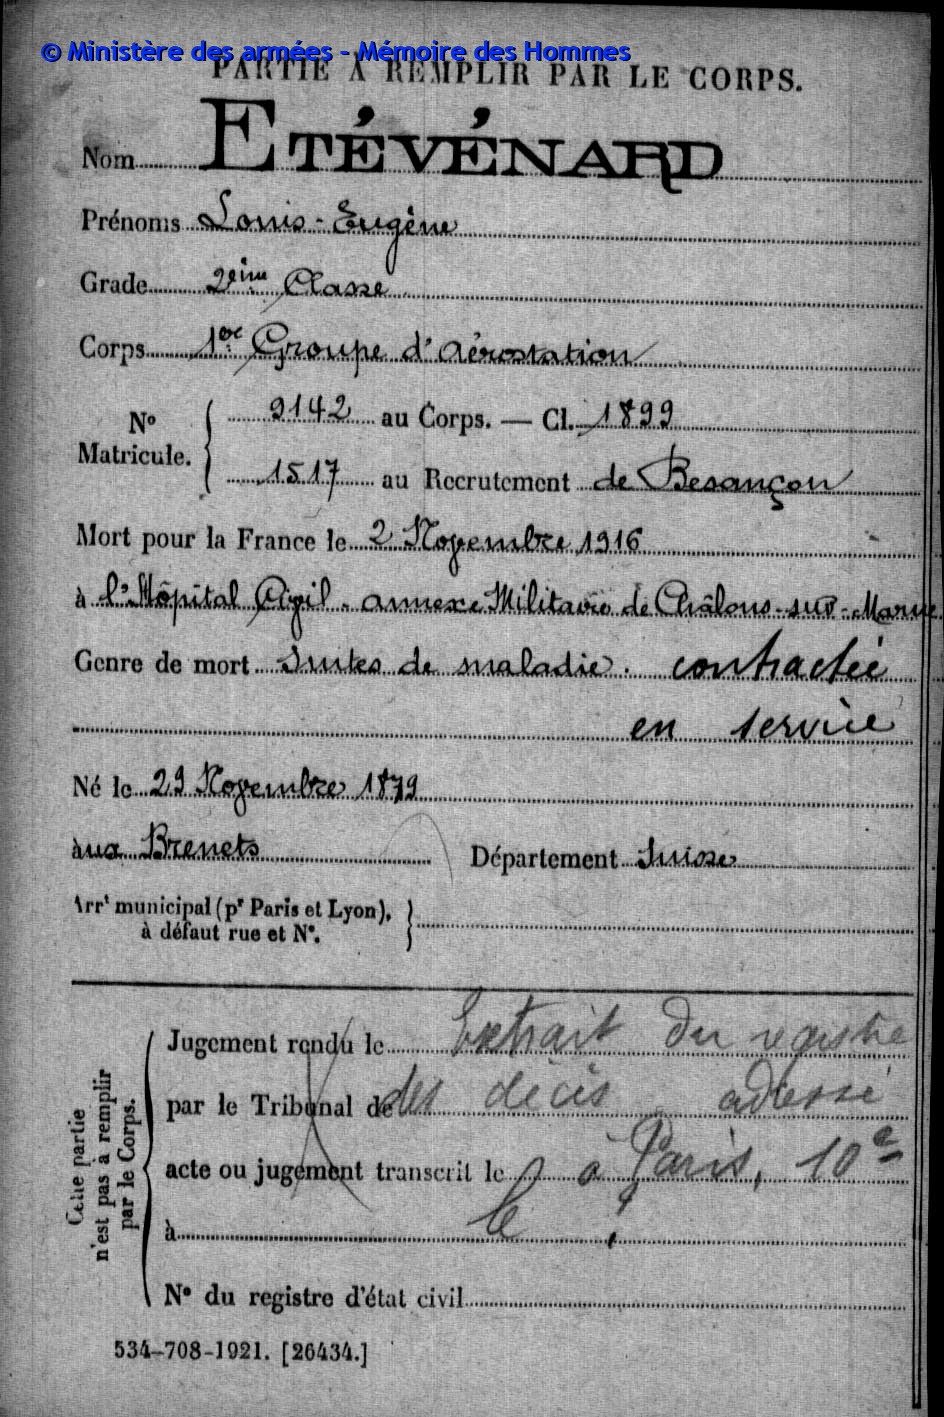 © Ministère des armées - Mémoire des Hommes
PARTIE À REMPLIR PAR LE CORPS.
Nom ETÉVÉNARD
Prénoms Louis-Eugène
Grade 2ème Classe
Corps 1er Groupe d'Aérostation
No Matricule. { 9142 au Corps. — Cl. 1899
1517 au Recrutement de Besançon
Mort pour la France le 2 Novembre 1916
à l'Hôpital Civil - annexe Militaire de Châlons-sur-Marne
Genre de mort Suites de maladie. contractée
en service
Né le 29 Novembre 1879
aux Brenets Département Suisse
Arrt municipal (pr Paris et Lyon), }
à défaut rue et No.
Cette partie n'est pas à remplir par le Corps.
Jugement rendu le Extrait du registre
par le Tribunal de des décès adressé
acte ou jugement transcrit le à Paris, 10e
à le
No du registre d'état civil
534-708-1921. [26434.]